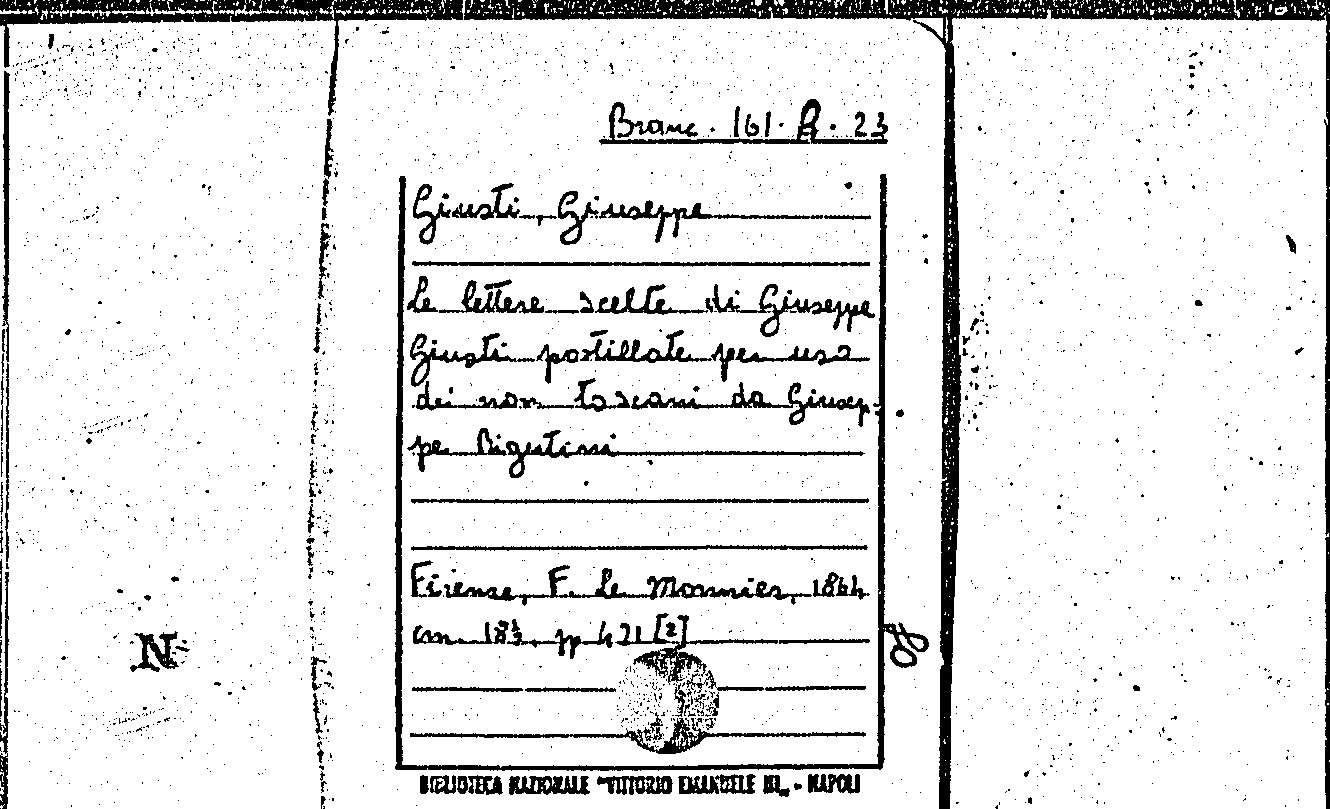 Branc. 161. B. 23
Giusti, Giuseppe
Le lettere scelte di Giuseppe
Giusti postillate per uso
dei non toscani da Giusep-
pe Rigutini
Firenze, F. Le Monnier, 1864
cm. 18½. pp 421 [2]
N
BIBLIOTECA NAZIONALE "VITTORIO EMANUELE III„ - NAPOLI